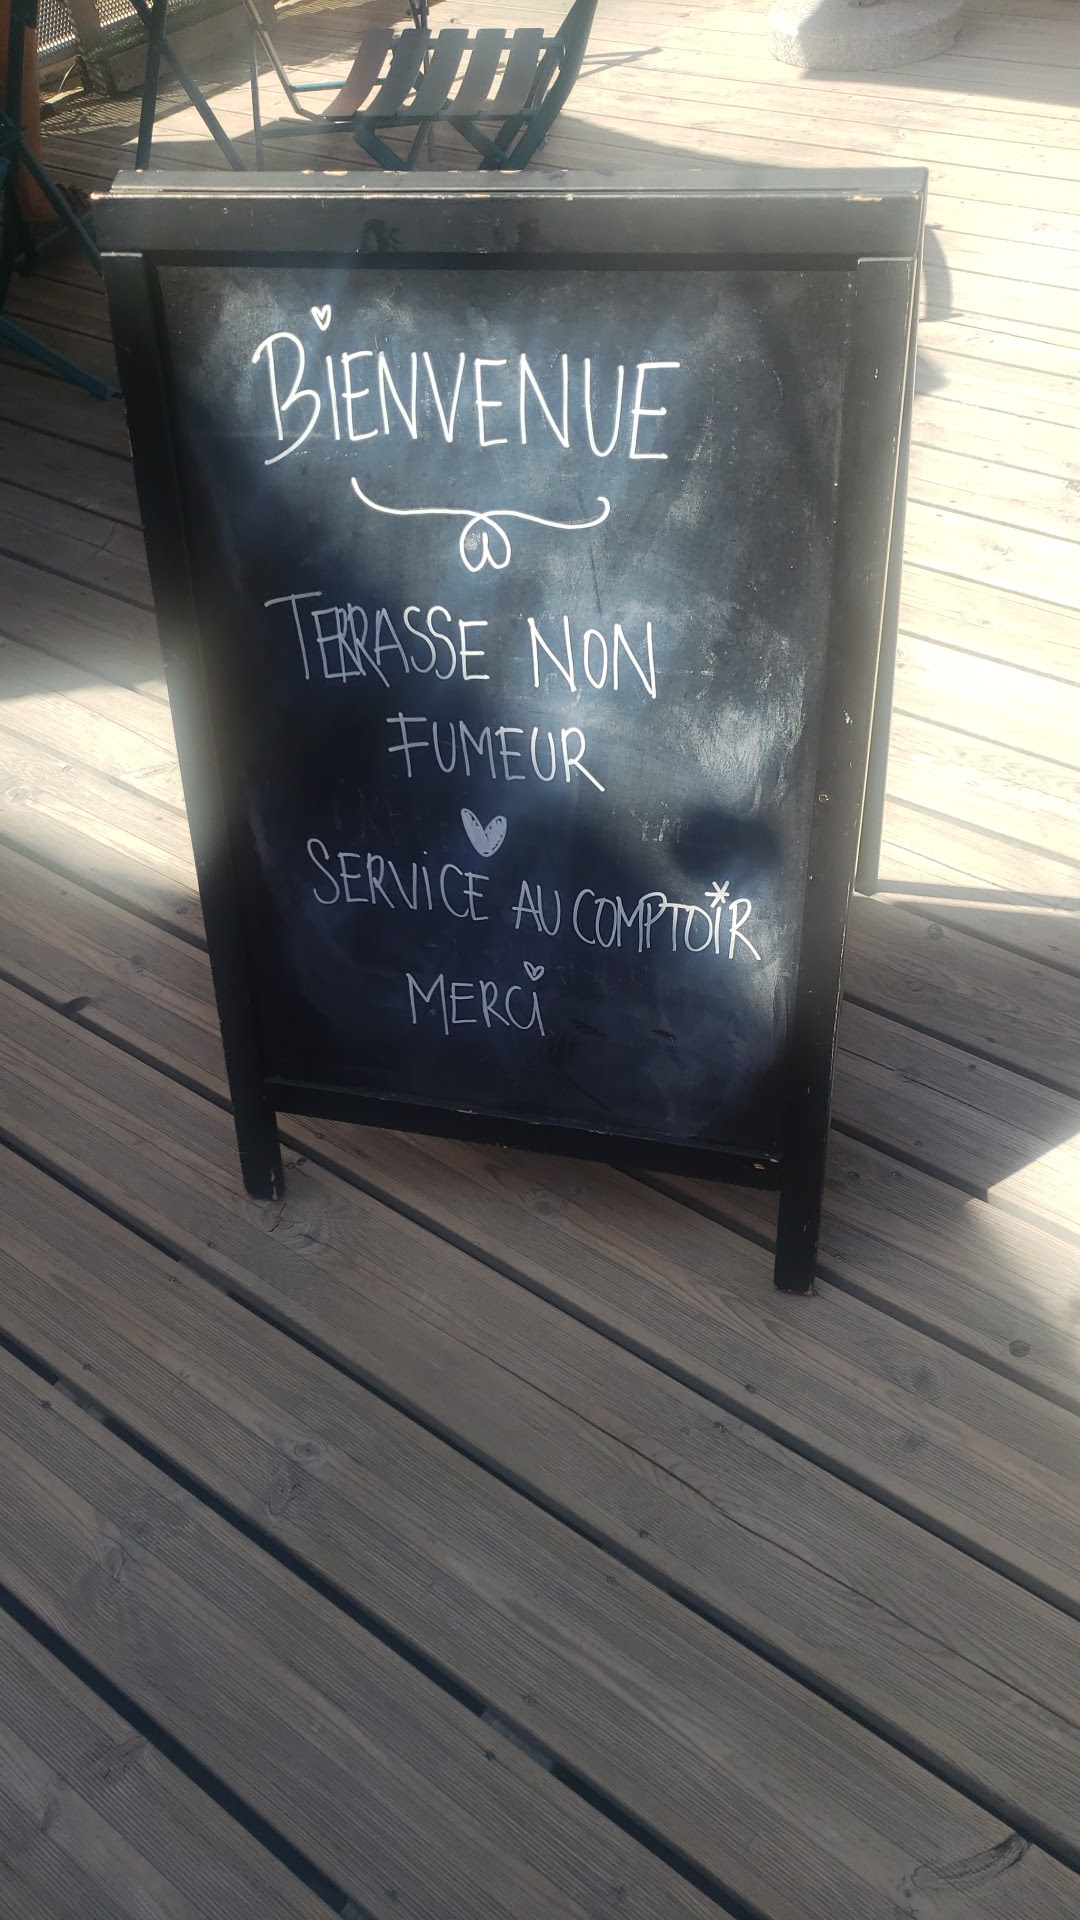 BIENVENUE
TERRASSE NON
FUMEUR
SERVICE AU COMPTOIR
MERCI